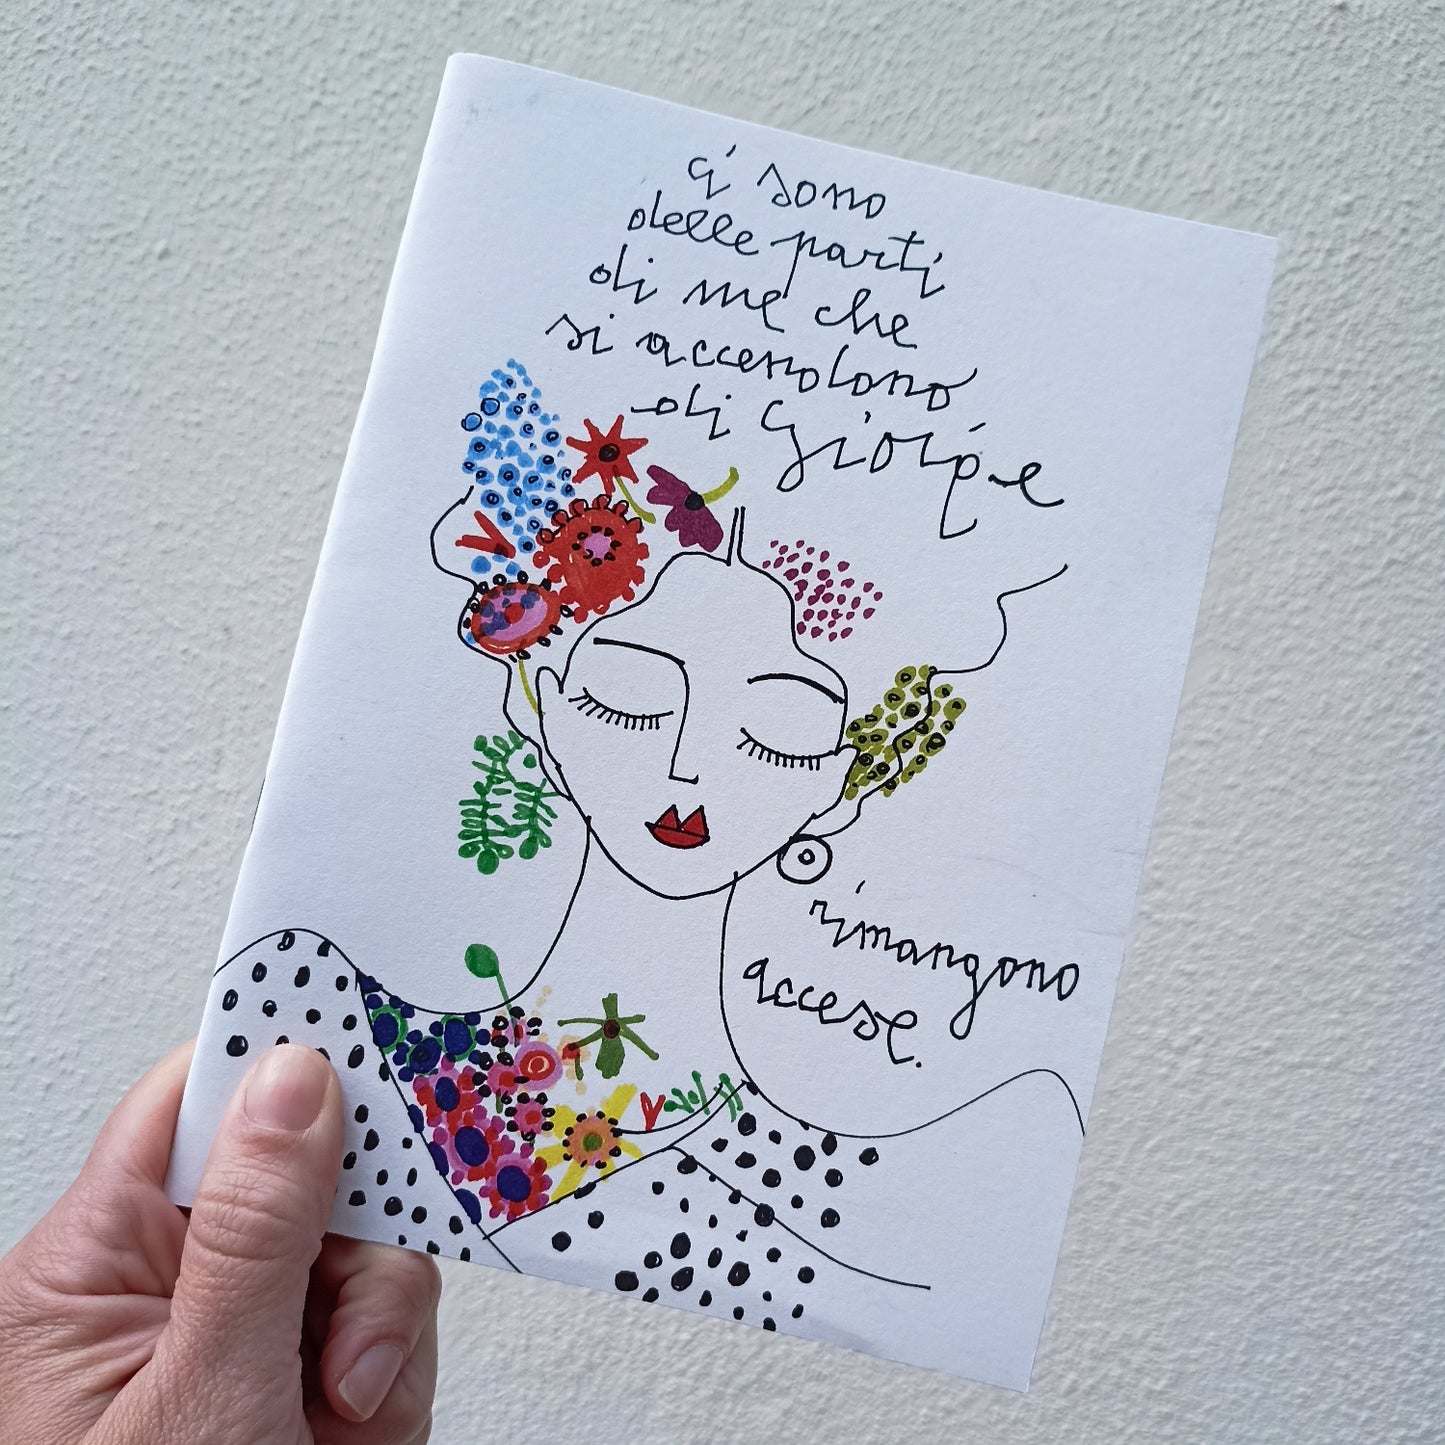 ci sono
delle parti
di me che
si accendono
di gioia e
rimangono
accese.